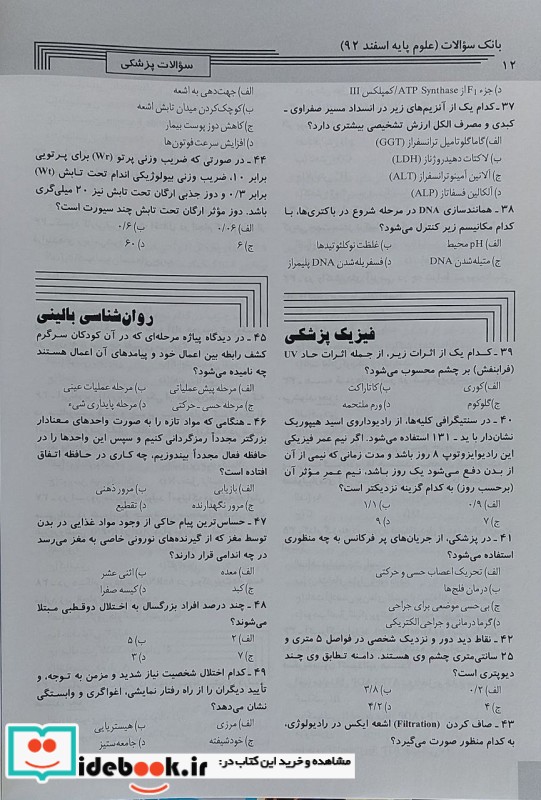 بانک سؤالات (علوم پایه اسفند ۹۲)
سؤالات پزشکی
۱۲
د) جزء F₁ از ATP Synthase/کمپلکس III
۳۷ ـ کدام یک از آنزیم‌های زیر در انسداد مسیر صفراوی ـ
کبدی و مصرف الکل ارزش تشخیصی بیشتری دارد؟
الف) گاماگلوتامیل ترانسفراز (GGT)
ب) لاکتات دهیدروژناز (LDH)
ج) آلانین آمینوترانسفراز (ALT)
د) آلکالین فسفاتاز (ALP)
۳۸ ـ همانندسازی DNA در مرحله شروع در باکتری‌ها، با
کدام مکانیسم زیر کنترل می‌شود؟
الف) pH محیط ب) غلظت نوکلئوتیدها
ج) متیله‌شدن DNA د) فسفریله‌شدن DNA پلیمراز
فیزیک پزشکی
۳۹ ـ کـدام یک از اثرات زیر، از جمله اثرات حاد UV
(فرابنفش) بر چشم محسوب می‌شود؟
الف) کوری ب) کاتاراکت
ج) گلوکوم د) ورم ملتحمه
۴۰ ـ در سنتیگرافی کلیه‌ها، از رادیوداروی اسید هیپوریک
نشان‌دار با ید ـ ۱۳۱ استفاده می‌شود. اگر نیم عمر فیزیکی
این رادیوایزوتوپ ۸ روز باشد و مدت زمانی که نیمی از آن
از بدن دفع می‌شود یک روز باشد، نیم عمر مؤثر آن
(برحسب روز) به کدام گزینه نزدیکتر است؟
الف) ۰/۹ ب) ۱/۱
ج) ۷ د) ۹
۴۱ ـ در پزشکی، از جریان‌های پر فرکانس به چه منظوری
استفاده می‌شود؟
الف) تحریک اعصاب حسی و حرکتی
ب) درمان فلج‌ها
ج) بی‌حسی موضعی برای جراحی
د) گرما درمانی و جراحی الکتریکی
۴۲ ـ نقاط دید دور و نزدیک شخصی در فواصل ۵ متری و
۲۵ سانتی‌متری چشم وی هستند. دامنه تطابق وی چند
دیوپتری است؟
الف) ۰/۲ ب) ۳/۸
ج) ۴ د) ۴/۲
۴۳ ـ صاف کردن (Filtration) اشعه ایکس در رادیولوژی،
به کدام منظور صورت می‌گیرد؟
الف) جهت‌دهی به اشعه
ب) کوچک‌کردن میدان تابش اشعه
ج) کاهش دوز پوست بیمار
د) افزایش سرعت فوتون‌ها
۴۴ ـ در صورتی که ضریب وزنی پرتو (Wr) برای پرتویی
برابر ۱۰، ضریب وزنی بیولوژیکی اندام تحت تابش (Wt)
برابر ۰/۳ و دوز جذبی ارگان تحت تابش نیز ۲۰ میلی‌گری
باشد. دوز مؤثر ارگان تحت تابش چند سیورت است؟
الف) ۰/۰۶ ب) ۰/۶
ج) ۶ د) ۶۰
روان‌شناسی بالینی
۴۵ ـ در دیدگاه پیاژه مرحله‌ای که در آن کودکان سرگرم
کشف رابطه بین اعمال خود و پیامدهای آن اعمال هستند
چه نامیده می‌شود؟
الف) مرحله پیش‌عملیاتی ب) مرحله عملیات عینی
ج) مرحله حسی ـ حرکتی د) مرحله پایداری شیء
۴۶ ـ هنگامی که مواد تازه را به صورت واحدهای معنادار
بزرگتر مجدداً رمزگردانی کنیم و سپس این واحدها را در
حافظه فعال مجدداً بیندوزیم، چه کاری در حافظه اتفاق
افتاده است؟
الف) بازیابی ب) مرور ذهنی
ج) مرور نگهدارنده د) تقطیع
۴۷ ـ حساس‌ترین پیام حاکی از وجود مواد غذایی در بدن
توسط مغز که از گیرنده‌های نورونی خاصی به مغز می‌رسد
در چه اندامی قرار دارند؟
الف) معده ب) اثنی عشر
ج) کبد د) کیسه صفرا
۴۸ ـ چند درصد افراد بزرگسال به اختلال دوقطبی مبتلا
می‌شوند؟
الف) ۲ ب) ۵
ج) ۷ د) ۳
۴۹ ـ کدام اختلال شخصیت نیاز شدید و مزمن به توجه، و
تأیید دیگران را از راه رفتار نمایشی، اغواگری و وابستگی
نشان می‌دهد؟
الف) مرزی ب) هیستریایی
ج) خودشیفته د) جامعه‌ستیز
مشاهده و خرید این کتاب در:
iidebook.ir